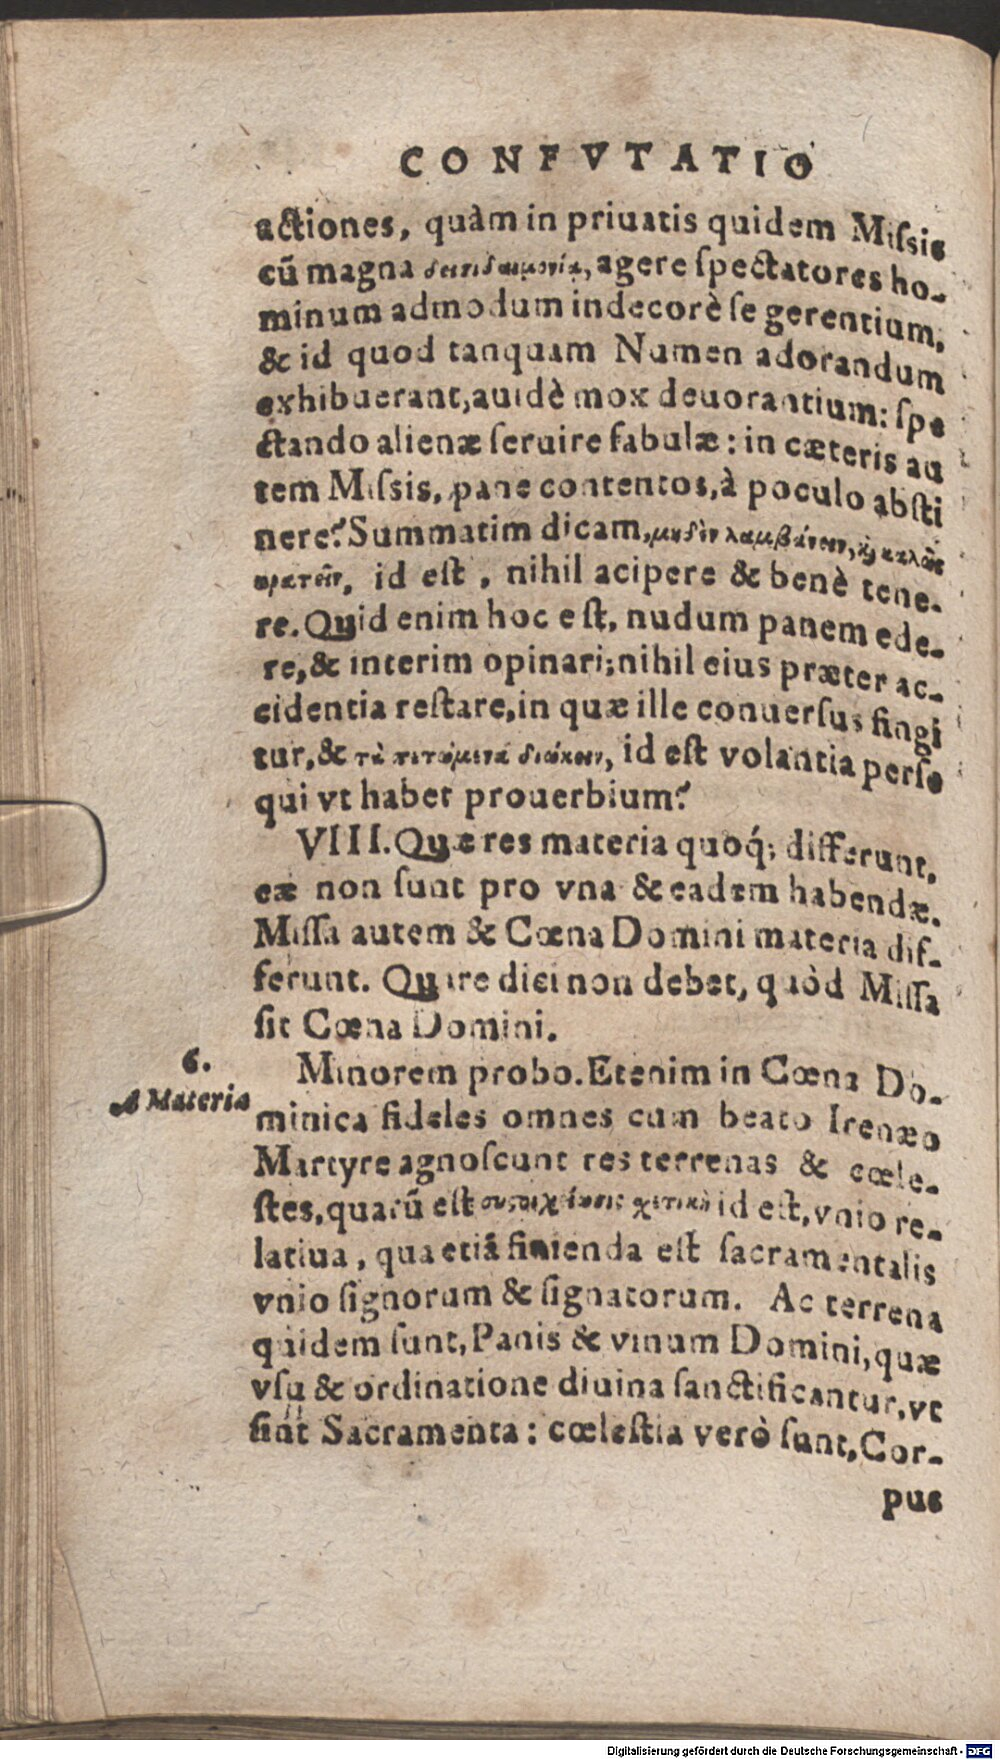 CONFVTATIO
actiones, quàm in priuatis quidem Miſsis
cũ magna δεισιδαιμονία, agere ſpectatores ho-
minum admodum indecorè ſe gerentium,
& id quod tanquam Numen adorandum
exhibuerant, auidè mox deuorantium: ſpe
ctando alienæ ſeruire fabulæ: in cæteris au
tem Miſsis, pane contentos, à poculo abſti
nere? Summatim dicam, μηδὲν λαμβάνειν, καὶ καλῶς
κρατεῖν, id eſt, nihil acipere & benè tene-
re. Quid enim hoc eſt, nudum panem ede-
re, & interim opinari; nihil eius præter ac-
cidentia reſtare, in quæ ille conuerſus fingi
tur, & τὰ πετόμενα διώκειν, id eſt volantia perſe
qui vt habet prouerbium?
VIII. Quæ res materia quoq́; differunt,
eæ non ſunt pro vna & eadem habendæ.
Miſſa autem & Cœna Domini materia dif-
ferunt. Quare dici non debet, quòd Miſſa
ſit Cœna Domini.
6.
A Materia
Minorem probo. Etenim in Cœna Do-
minica fideles omnes cum beato Irenæo
Martyre agnoſcunt res terrenas & cœle-
ſtes, quarũ eſt id eſt, vnio re-
latiua, qua etiã finienda eſt ſacramentalis
vnio ſignorum & ſignatorum. Ac terrena
quidem ſunt, Panis & vinum Domini, quæ
vſu & ordinatione diuina ſanctificantur, vt
ſint Sacramenta: cœleſtia verò ſunt, Cor-
pus
Digitalisierung gefördert durch die Deutsche Forschungsgemeinschaft - DFG